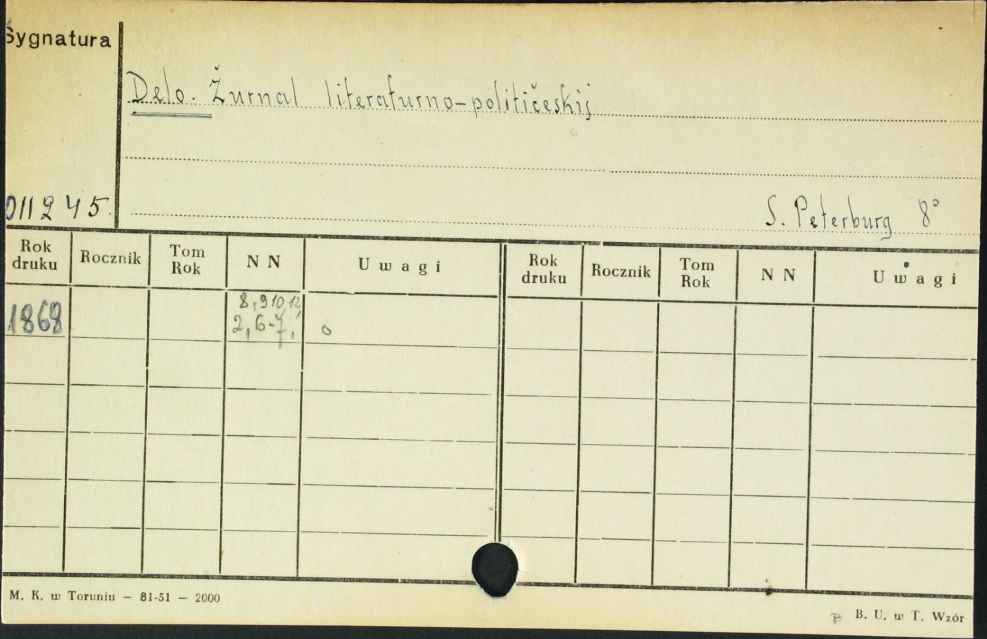 Sygnatura
Delo. Žurnal literaturno-političeskij
011245
S. Peterburg 8°
Rok druku Rocznik Tom Rok NN Uwagi Rok druku Rocznik Tom Rok NN Uwagi
8,9,10,12
1868 2,6-7,
M. K. w Toruniu — 81-51 — 2000
B. U. w T. Wzór